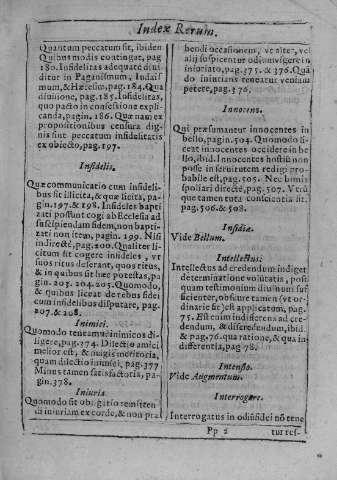 Index Rerum.
Quantum peccatum sit, ibiden
Quibus modis contingat, pag
180. Infidelitas adequatè diui
ditur in Paganismum, Iudaïs
mum, & Hæresim, pag. 184. Qua
diuisione, pag. 185. Infidelitas,
quo pacto in confessione expli
canda, pagin. 186. Quæ nam ex
propositionibus censura dig
nis sint peccatum infidelitatis
ex obiecto, pag. 197.
Infidelis.
Quæ communicatio cum infideli
bus sit illicita, & quæ licita, pa-
gin. 197. & 198. Infideles bapti
zati possunt cogi ab Ecclesia ad
suscipiendam fidem, non bapti-
zati non item, pagin. 199. Nisi
indirectè, pag. 200. Qualiter li-
citum sit cogere infideles, vt
suos ritus deserant, quos ritus,
& in quibus sit hæc potestas, pa-
gin. 203. 204. 205. Quomodo,
& quibus liceat de rebus fidei
cum infidelibus disputare, pag.
207. & 208.
Inimici.
Quomodo teneamur inimicos di-
ligere, pag. 374. Dilectio amici
melior est, & magis meritoria,
quam dilectio inimici, pag. 377
Minus tamen satisfactoria, pa-
gin. 378.
Iniuria.
Quomodo sit obligatio remitten
di iniuriam ex corde, & non præ
bendi occasionem, vt alter, vel
alij suspicentur odium vigere in
iniuriato, pag. 375. & 376. Quã
do iniurians teneatur veniam
petere, pag. 376.
Innocens.
Qui præsumantur innocentes in
bello, pagin. 504. Quomodo li-
ceat innocentes occidere in be
llo, ibid. Innocentes hostiũ non
posse in seruitutem redigi pro-
babile est, pag. 505. Nec bimis
spoliari directè, pag. 507. Vtrũ
que tamen tuta conscientia sit
pag. 506. & 508.
Insidiæ.
Vide Bellum.
Intellectus:
Intellectus ad credendum indiget
determinatione voluntatis, posit
quam testimonium diuinum suf
ficienter, obscure tamen (vt or-
dinarie fit) est applicatum, pag.
75. Est enim indifferens ad cre-
dendum, & discredendum, ibid.
& pag. 76. qua ratione, & qua in
differentia, pag 78.
Intensio.
Vide Augmentum.
Interrogare.
Interrogatus in odiũ fidei nõ tene
Pp 2
tur res-